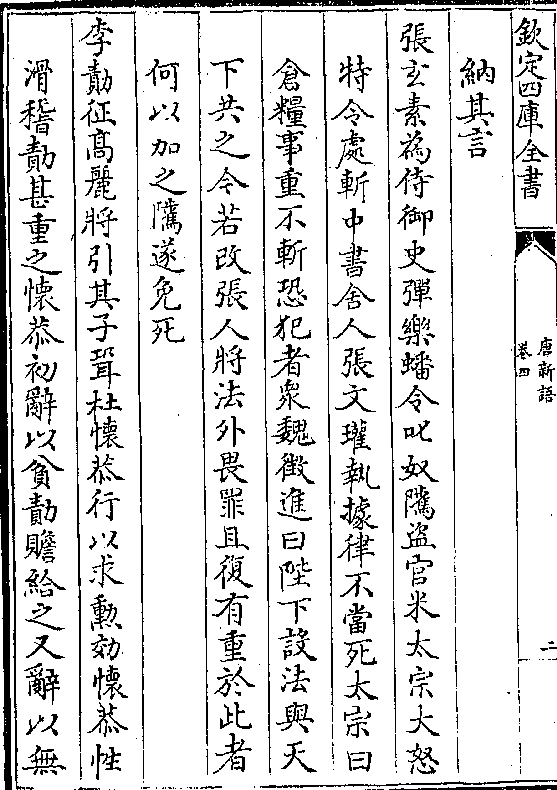 欽定四庫全書
唐新語
卷四
二
納其言
張玄素為侍御史彈樂蟠令叱奴隲盜官米太宗大怒
特令處斬中書舍人張文瓘執據律不當死太宗曰
倉糧事重不斬恐犯者衆魏徵進曰陛下設法與天
下共之今若改張人將法外畏罪且復有重於此者
何以加之隲遂免死
李勣征高麗將引其子聟杜懷恭行以求勳効懷恭性
滑稽勣甚重之懷恭初辭以貧勣贍給之又辭以無